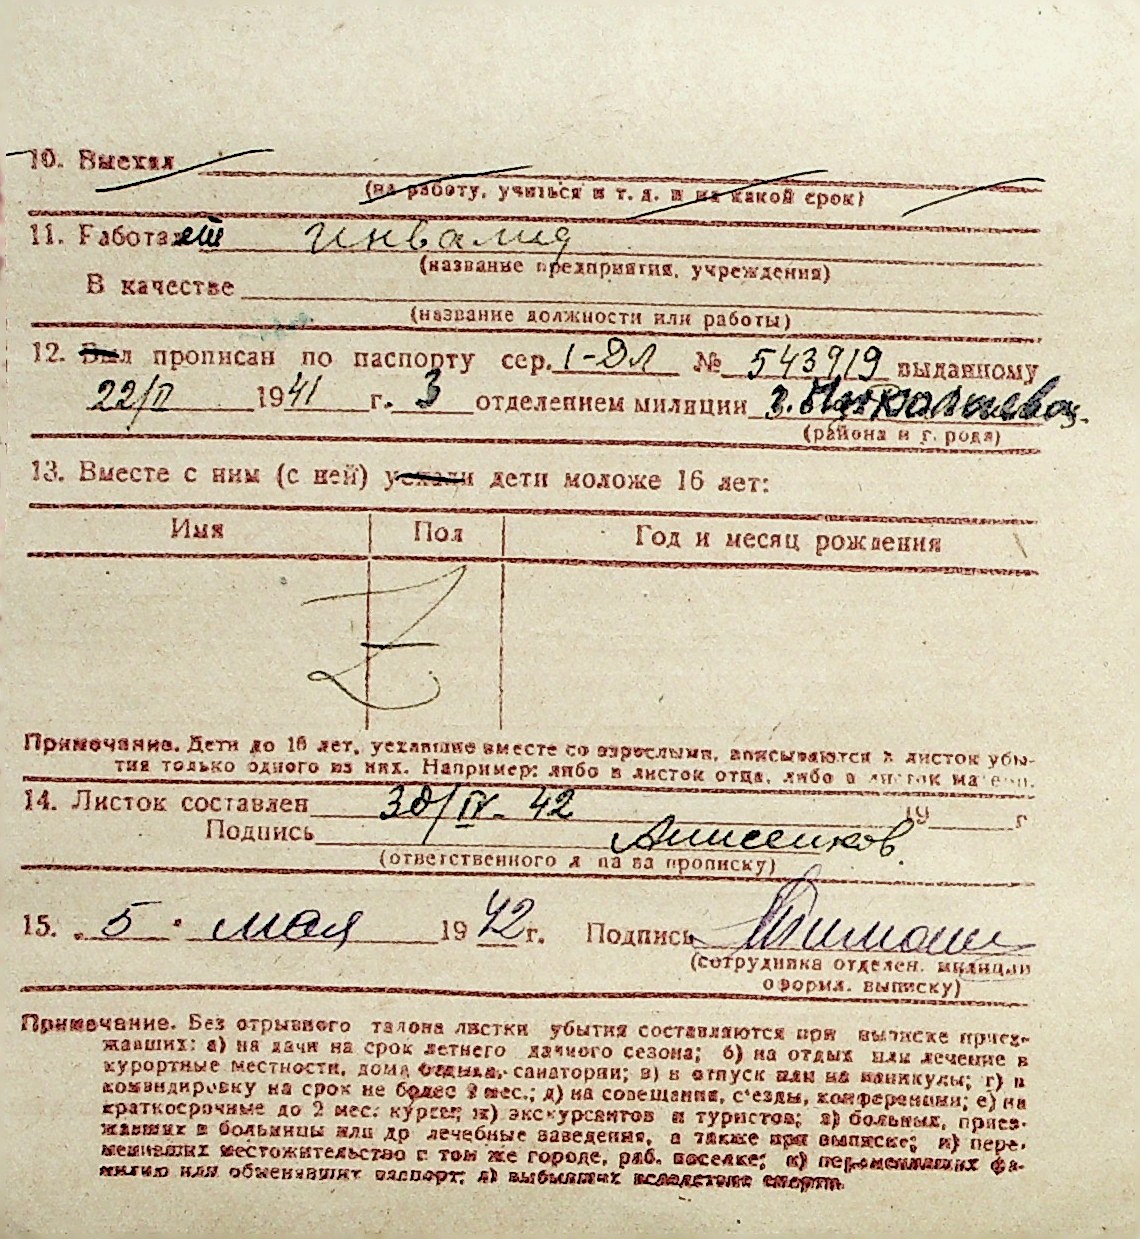 10. Выехал
(на работу, учиться и т. д. и на какой срок)
11. Работает инвалид
(название предприятия, учреждения)
В качестве
(название должности или работы)
12. Был прописан по паспорту сер. I-ДЛ № 543919 выданному
22/II 1941 г. 3 отделением милиции г.
(района и города)
13. Вместе с ним (с ней) уехали дети моложе 16 лет:
Имя Пол Год и месяц рождения
Z
Примечание. Дети до 16 лет, уехавшие вместе со взрослыми, вписываются в листок убы-
тия только одного из них. Например: либо в листок отца, либо в листок матери.
14. Листок составлен 30/IV- 42 19 г
Подпись Анисенков
(ответственного л ца за прописку)
15. „ 5 " мая 1942 г. Подпись
(сотрудника отделен. милиции
оформл. выписку)
Примечание. Без отрывного талона листки убытия составляются при выписке приез-
жавших: а) на дачи на срок летнего дачного сезона; б) на отдых или лечение в
курортные местности, дома отдыха, санатории; в) в отпуск или на каникулы; г) в
командировку на срок не более 2 мес.; д) на совещания, с'езды, конференции; е) на
краткосрочные до 2 мес. курсы; ж) экскурсантов и туристов; з) больных, приез-
жавших в больницы или др лечебные заведения, а также при выписке; и) пере-
менивших местожительство в том же городе, раб. поселке; к) переменивших фа-
милию или обменявших паспорт; л) выбывших вследствие смерти.